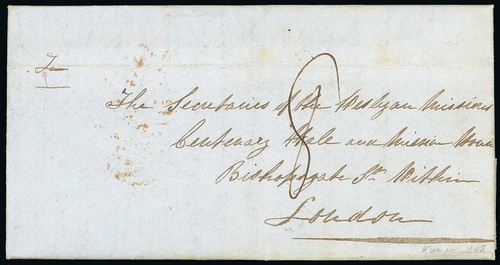 To
The Secretaries of the Weslyan Missions
Centenary Hale and Mission House
Bishopsgate St. Within
London
8